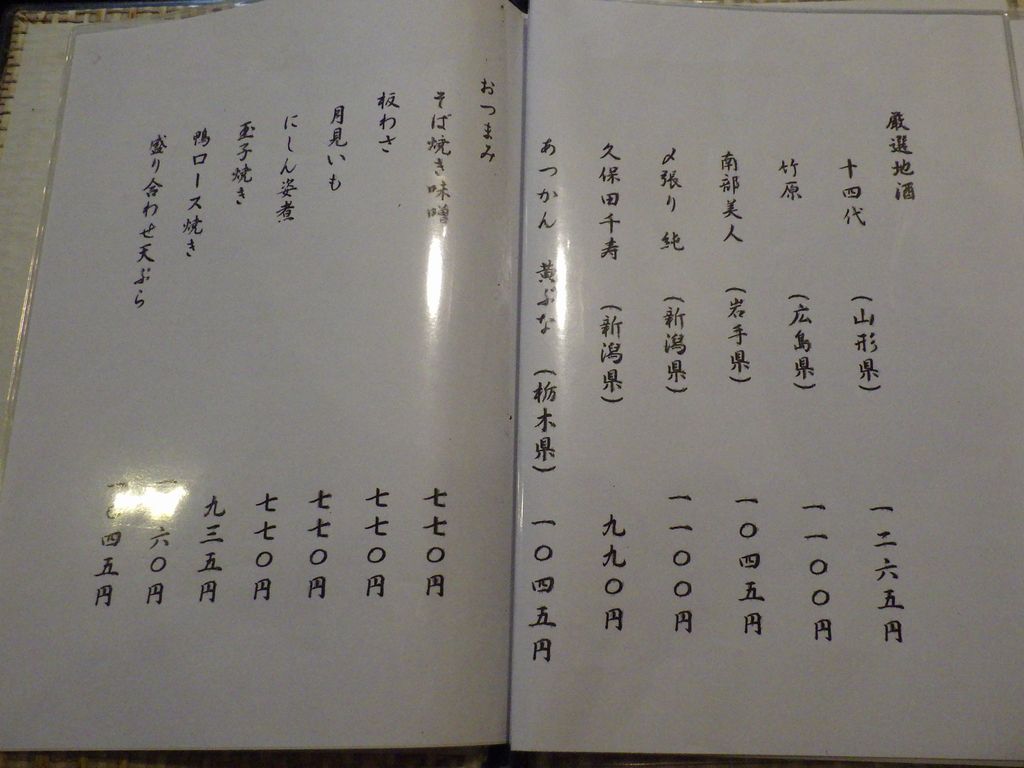 厳選地酒
十四代 (山形県) 一二六五円
竹原 (広島県) 一一〇〇円
南部美人 (岩手県) 一〇四五円
〆張り 純 (新潟県) 一一〇〇円
久保田千寿 (新潟県) 九九〇円
あつかん 黄ぶな (栃木県) 一〇四五円
おつまみ
そば焼き味噌 七七〇円
板わさ 七七〇円
月見いも 七七〇円
にしん姿煮 七七〇円
玉子焼き 九三五円
鴨ロース焼き
盛り合わせ天ぷら